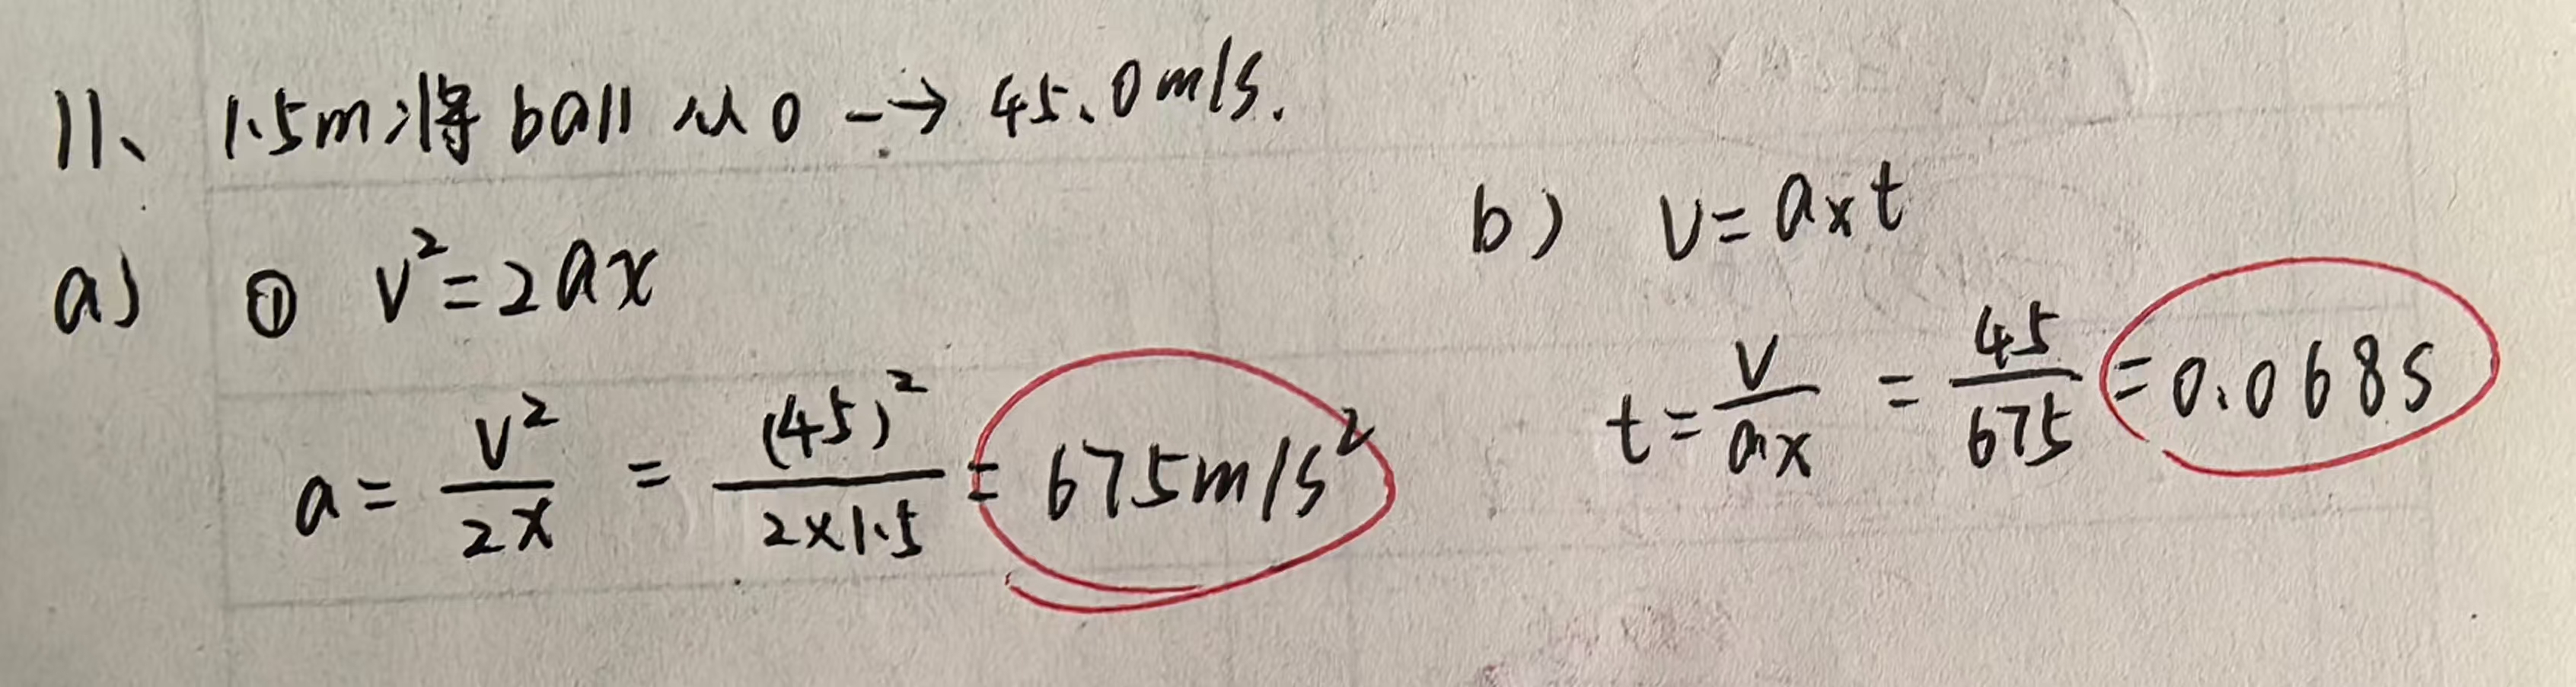 11、 1.5m 将 ball 从 0 → 45.0m/s.
a) ① v²=2ax
a= v²/2x = (45)²/2×1.5 = 675m/s²
b) v=axt
t= v/ax = 45/675 =0.068s